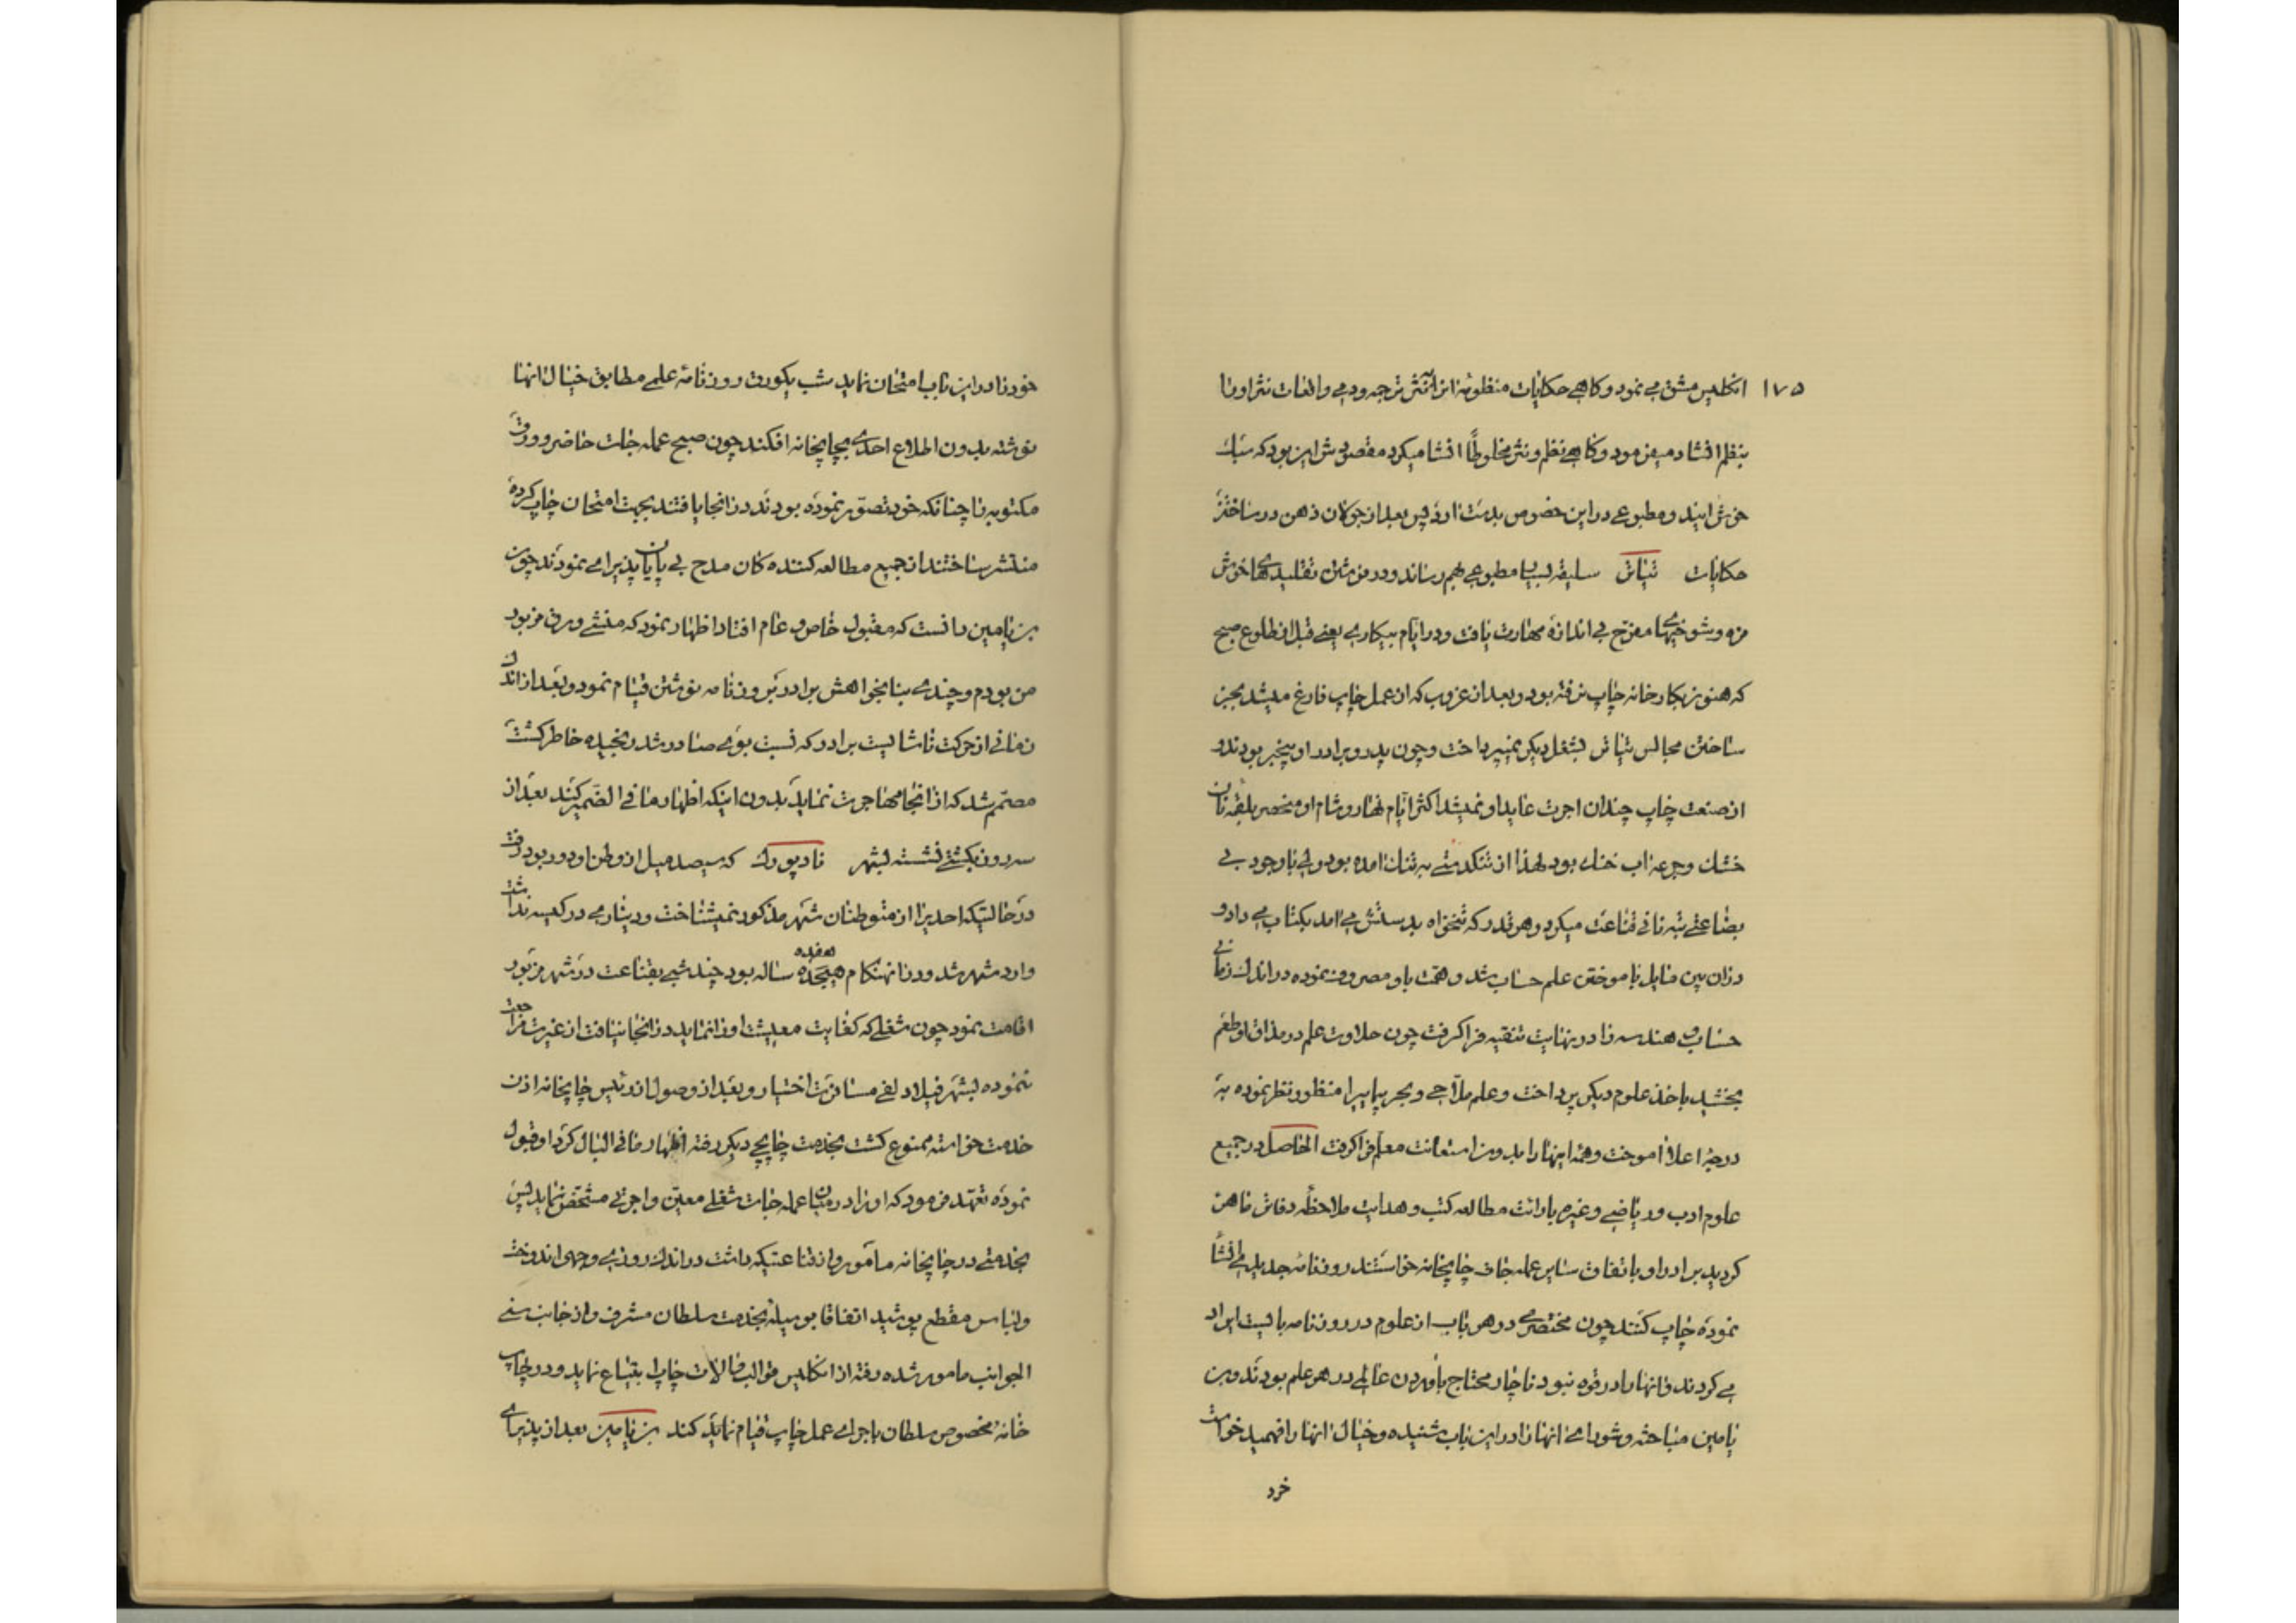 ۱۷۵
انکلیس مشق می نمود و کاهی حکایات منظومه از انثر ترجمه و دمی واقعات نثر او را
بنظم انشاد میفرمود و کاهی نظم و نثر مخلوطاً انشا میکرد مقصودش این بود که سبک
خوش ایند و مطبوعی در این خصوص بدست ارد پس بعد از جولان ذهن در ساختن
حکایات تیاتر سلیقه بسیار مطبوعی بهم رساند و در نوشتن تقلیدهای خوش
مزه و شوخیهای مفرح بی اندازه مهارت یافت و در ایام بیکاری یعنی قبل از طلوع صبح
که هنوز بکارخانه چاپ نرفته بود و بعد از غروب که از عمل چاپ فارغ میشد بجز
ساختن مجالس تیاتر بشغل دیکر نمیپرداخت و چون پدر و برادر او بیخبر بودند و
از صنعت چاپ چندان اجرت عاید او نمیشد اکثر ایام نهار و شام او منحصر بلقمه نان
خشک و جرعه اب خنک بود لهذا از تنکدستی به تنک امده بود ولی با وجود بی
بضاعتی به نانی قناعت میکرد و هر قدر که تنخواه بدستش می امد بکتاب می داد و
در ان بین مایل باموختن علم حساب شد و همت باو مصروف نموده در اندک زمانی
حساب و هندسه را در نهایت تنقیه فرا کرفت چون حلاوت علم در مذاق او طعم
بخشید باخذ علوم دیکر پرداخت و علم ملاحی و بحر پیمایی را منظور نظر نموده به
درجه اعلا اموخت و همه اینها را بدون استعانت معلم فرا کرفت الحاصل در جمیع
علوم ادب و ریاضی و غیره بارائت مطالعه کتب و هدایت ملاحظه دفاتر ماهر
کردید برادر او باتفاق سایر عمله جات چاپخانه خواستند روزنامه جدیدی انشا
نموده چاپ کنند چون مختصری در هر باب از علوم در روزنامه بایست ایراد
می کردند و انها را در قوه نبود ناچار محتاج باوردن عالمی در هر علم بودند و بن
یامین مباحثه و شورای انها را در این باب شنیده و خیال انها را فهمید خواست
خود
خود را در این باب امتحان نماید شب یکورق روزنامه علمی مطابق خیال انها
نوشته بدون اطلاع احدی بچاپخانه افکند چون صبح عمله جات حاضر و ورق
مکتوبه را چنانکه خود تصور نموده بودند در انجا یافتند بجهت امتحان چاپ کرده
منتشر ساختند از جمیع مطالعه کننده کان مدح بی پایان پذیرا می نمودند چون
بن یامین دانست که مقبول خاص و عام افتاد اظهار نمود که منشی ورق مزبور
من بودم و چندی بنا بخواهش برادر بروزنامه نوشتن قیام نمود و بعد از اندک
زمانی از حرکت ناشایست برادر که نسبت بوی صادر شد رنجیده خاطر کشت
مصمم شد که از انجا مهاجرت نماید بدون اینکه اظهار ما فی الضمیر کند بعد از
سه روز بکشتی نشسته بشهر نادیورک که سیصد میل از وطن او دور بود رفت
در حالتیکه احدیرا از متوطنان شهر مذکور نمیشناخت و دیناری در کیسه نداشت
وارد شهر شد و در انهنکام هیجده هفده ساله بود چند شبی بقناعت در شهر مزبور
اقامت نمود چون شغلی که کفایت معیشت او را نماید در انجا نیافت از غیرت مراجعت
ننموده بشهر فیلادلفی مسافرت اختیار و بعد از وصول از رئیس چاپخانه اذن
خدمت خواسته ممنوع کشت بخدمت چاپچی دیکر رفته اظهار ما فی البال کرد او قبول
نموده تعهد فرمود که او را در میان عمله جات شغلی معین و اجرتی مشخص نماید پس
بخدمتی در چاپخانه مامور و از قناعتیکه داشت در اندک روزی وجهی اندوخت
و لباس مقطع پوشید اتفاقا بوسیله بخدمت سلطان مشرف و از جانب سنی
الجوانب مامور شده رفته از انکلیس قوالب و الات چاپ ابتیاع نماید و در چاپ
خانه مخصوص سلطان باجرای عمل چاپ قیام نماید کند بن یامین بعد از پذیرای